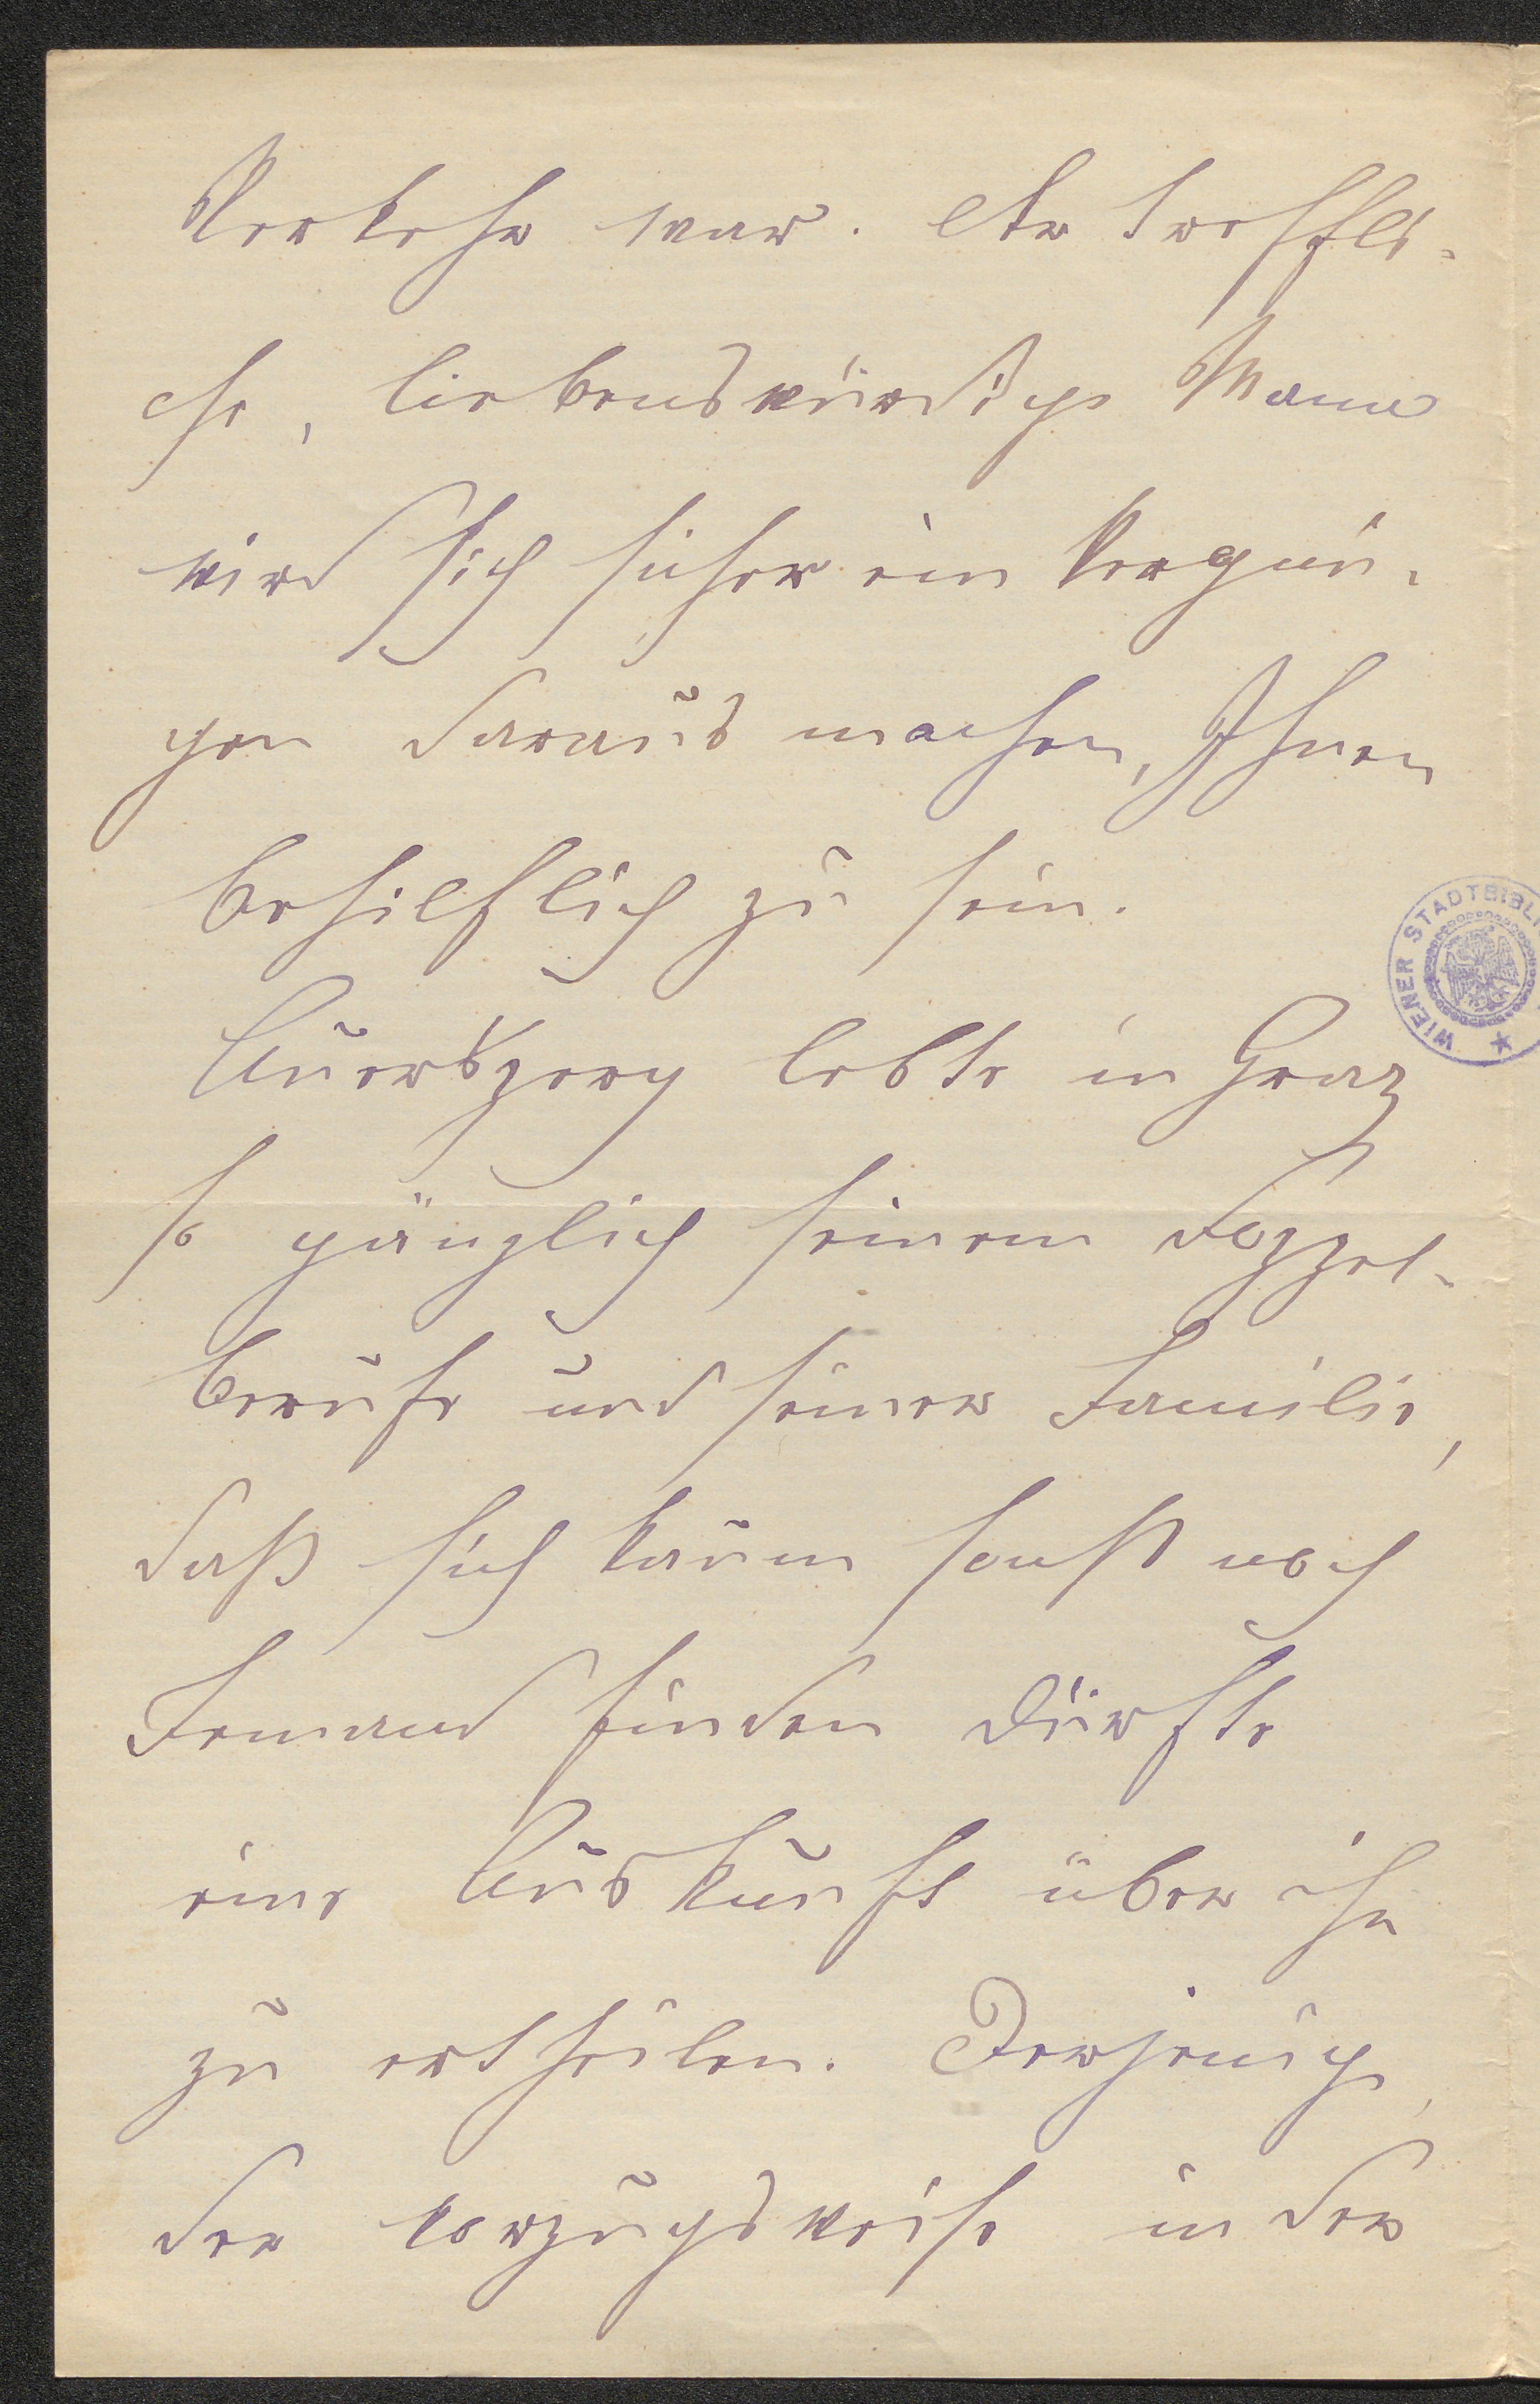 Verkehr war. Der treffli-
che, liebenswürdige Mann
wird sich sicher ein Vergnü-
gen daraus machen, Ihnen
behilflich zu sein.
Auersperg lebte in Graz
so gänzlich seinem Doppel-
berufe und seiner Familie,
daß sich kaum sonst noch
Jemand finden dürfte
eine Auskunft über ihn
zu ertheilen. Derjenige,
der vorzugsweise in der
WIENER STADTBIBLI